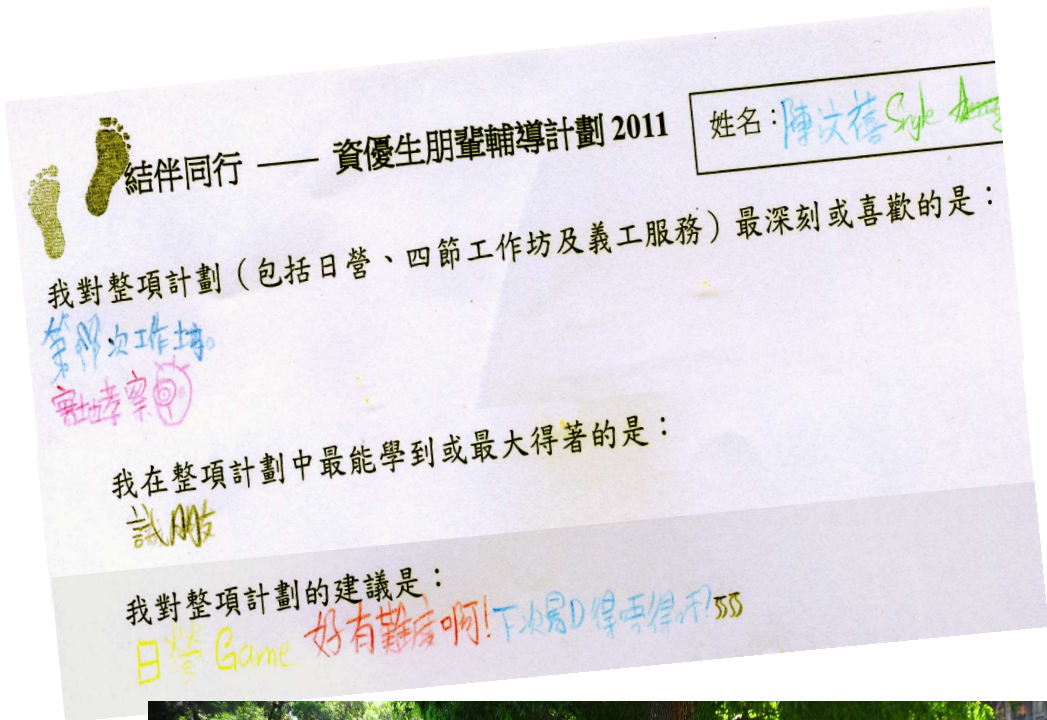 結伴同行 —— 資優生朋輩輔導計劃 2011
姓名：陳汶禧
我對整項計劃（包括日營、四節工作坊及義工服務）最深刻或喜歡的是：
第四次工作坊。
實地考察
我在整項計劃中最能學到或最大得著的是：
識朋友
我對整項計劃的建議是：
日營 Game 好有難度啊!下次易D得唔得呀?